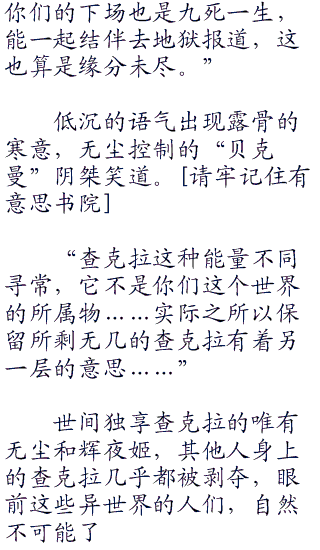 你们的下场也是九死一生，
能一起结伴去地狱报道，这
也算是缘分未尽。”
低沉的语气出现露骨的
寒意，无尘控制的“贝克
曼”阴桀笑道。[请牢记住有
意思书院]
“查克拉这种能量不同
寻常，它不是你们这个世界
的所属物……实际之所以保
留所剩无几的查克拉有着另
一层的意思……”
世间独享查克拉的唯有
无尘和辉夜姬，其他人身上
的查克拉几乎都被剥夺，眼
前这些异世界的人们，自然
不可能了